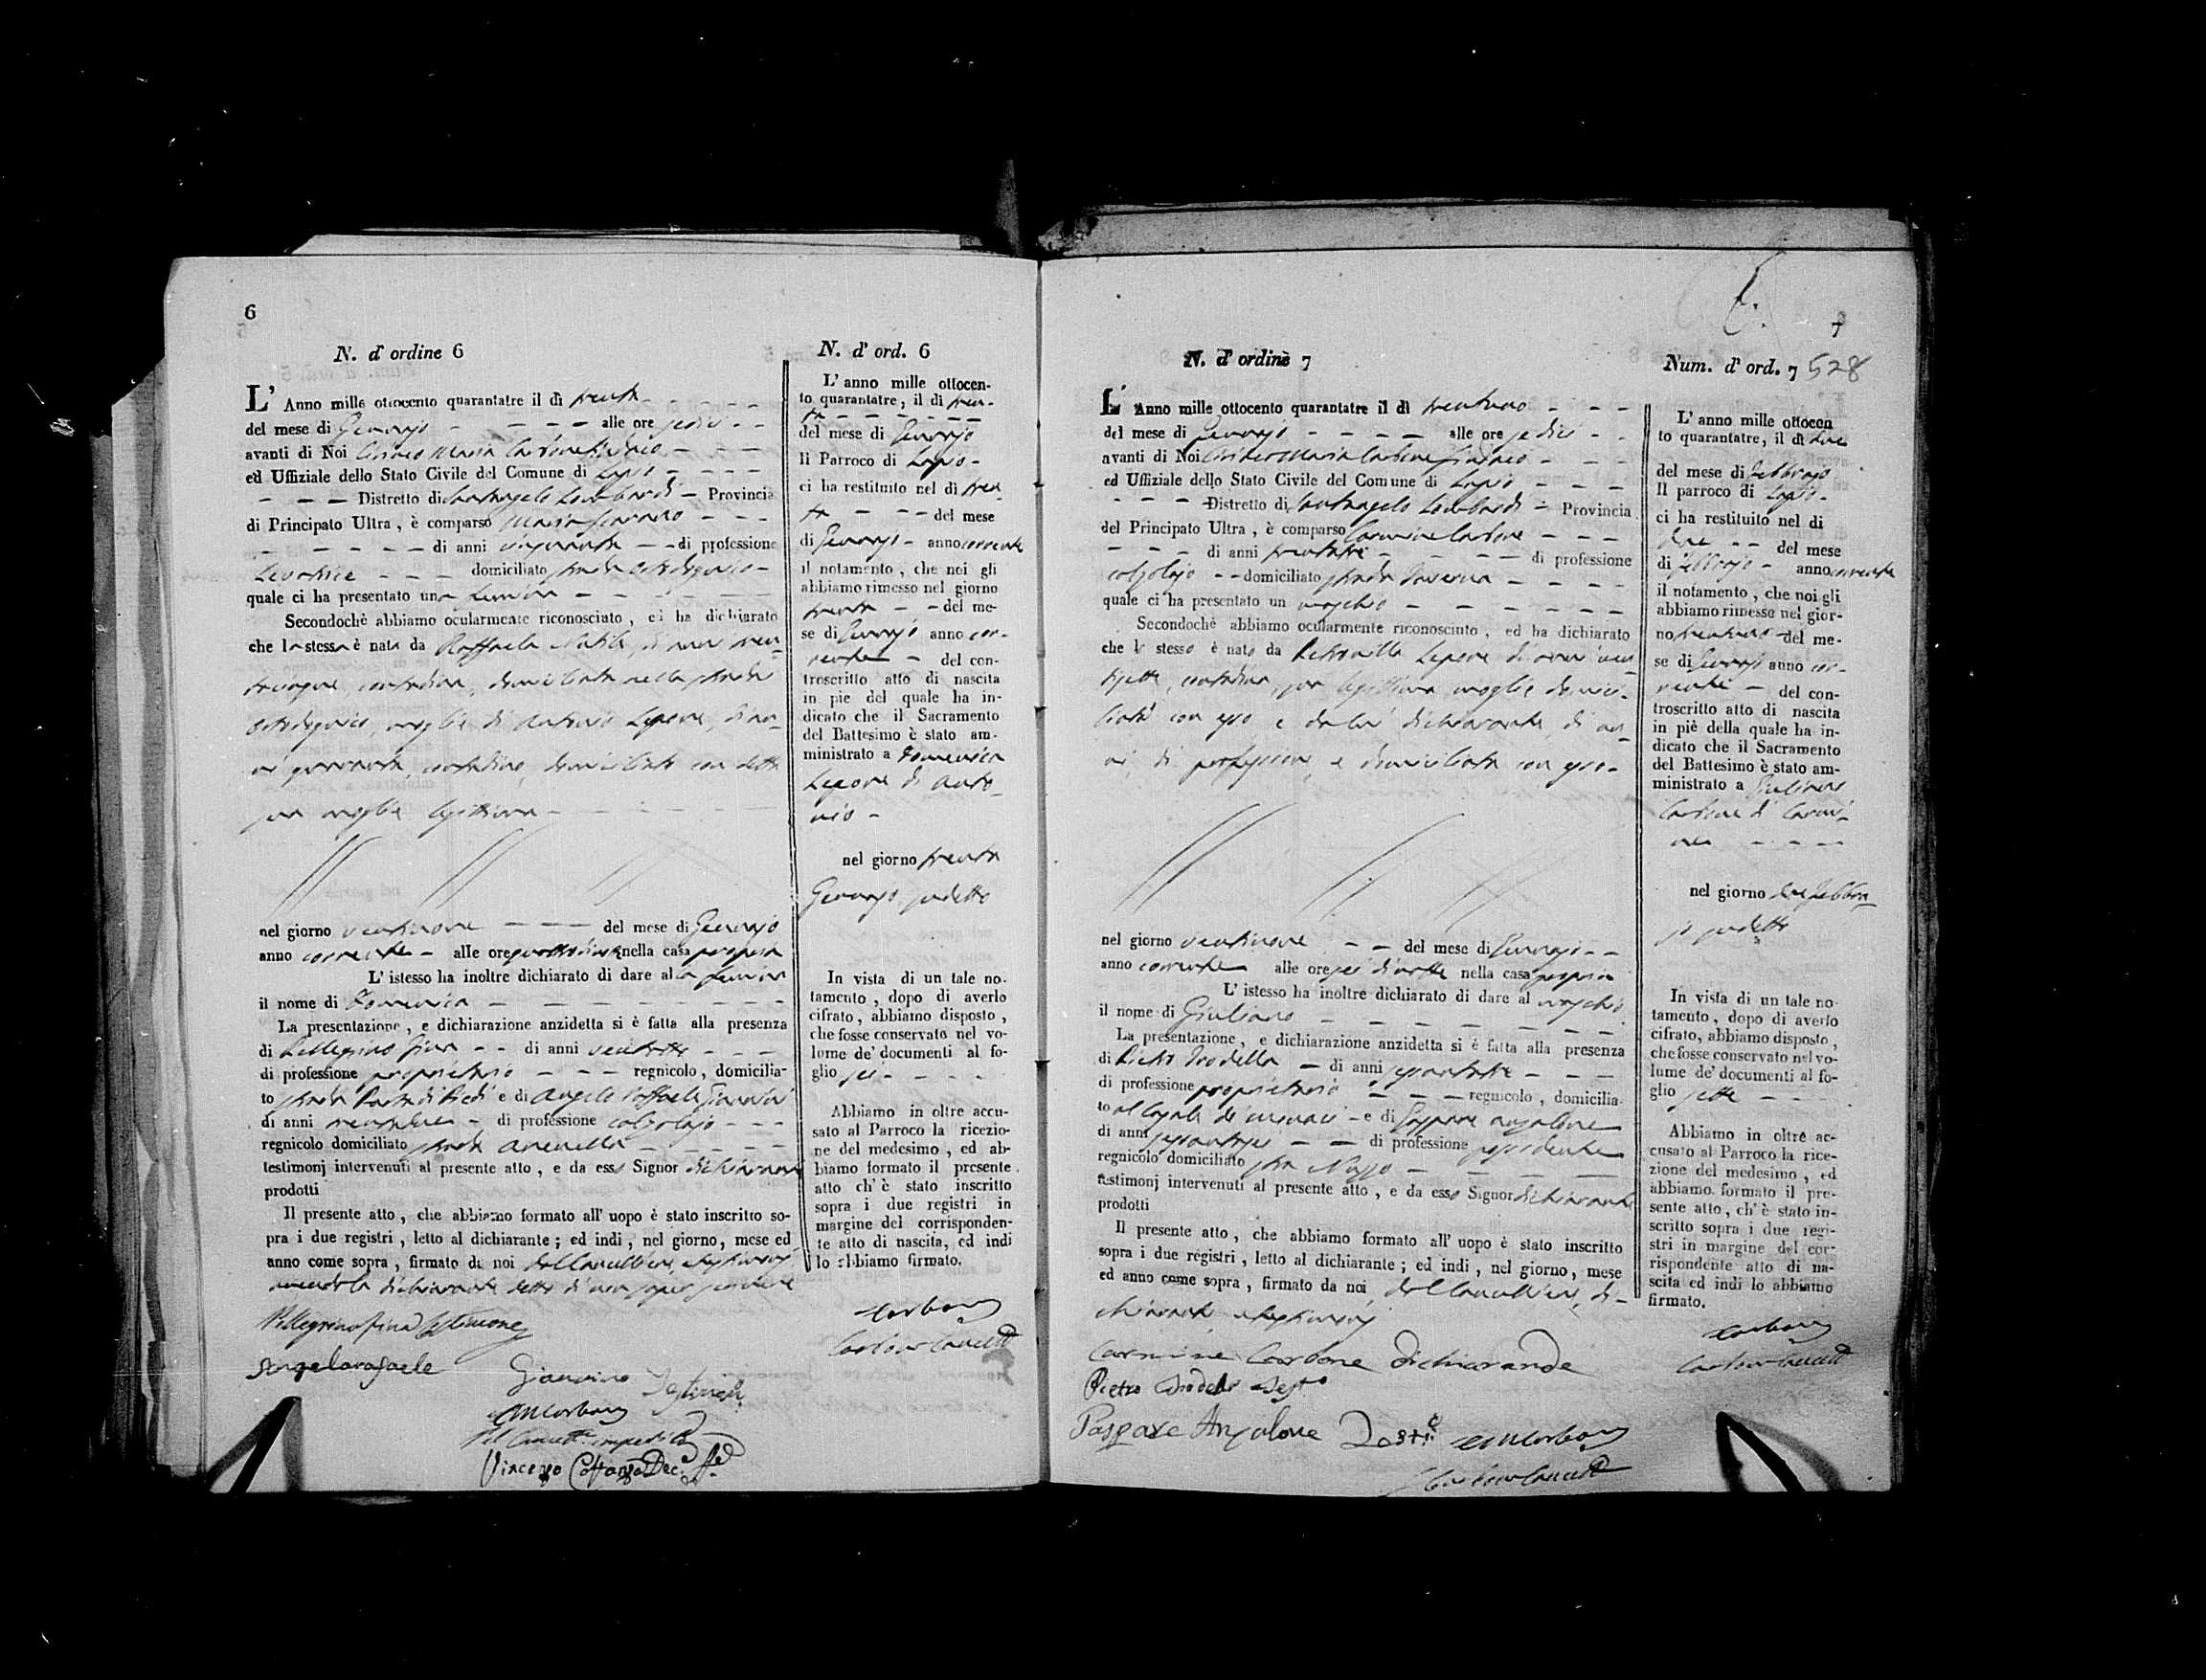 6
N. d' ordine 6
L' Anno mille ottocento quarantatre il dì trenta
del mese di Gennajo alle ore sedici
avanti di Noi Maria Carbone Sindaco
ed Uffiziale dello Stato Civile del Comune di Lapio
Distretto di Santangelo Lombardi Provincia
di Principato Ultra, è comparso Maria
di anni cinquanta di professione
Levatrice domiciliato strada
quale ci ha presentato una femina
Secondochè abbiamo ocularmente riconosciuto, ed ha dichiarato
che la stessa è nata da Raffaela di anni tren-
tacinque, contadina, domiciliata nella strada
moglie di Antonio Lepore, di an-
ni quaranta, contadino, domiciliato con detta
sua moglie legittima
nel giorno ventinove del mese di Gennajo
anno corrente alle ore nella casa propria
L' istesso ha inoltre dichiarato di dare alla femina
il nome di Domenica
La presentazione, e dichiarazione anzidetta si è fatta alla presenza
di Pellegrino Fina di anni ventotto
di professione proprietario regnicolo, domicilia-
to strada e di Angelo Raffaele
di anni di professione calzolajo
regnicolo domiciliato strada
testimonj intervenuti al presente atto, e da esso Signor dichiarante
prodotti
Il presente atto, che abbiamo formato all' uopo è stato inscritto so-
pra i due registri, letto al dichiarante; ed indi, nel giorno, mese ed
anno come sopra, firmato da noi dal Cancelliere, e testimonj
avendo la dichiarante detto di non saper scrivere
Pellegrino Fina testimone
Angelarafaele Gianvino
Vincenzo
N. d' ord. 6
L' anno mille ottocen-
to quarantatre, il dì tren-
ta
del mese di Gennajo
Il Parroco di Lapio
ci ha restituito nel dì tren-
ta del mese
di Gennajo anno corrente
il notamento, che noi gli
abbiamo rimesso nel giorno
trenta del me-
se di Gennajo anno cor-
rente del con-
troscritto atto di nascita
in piè del quale ha in-
dicato che il Sacramento
del Battesimo è stato am-
ministrato a Domenica
Lepore di Anto-
nio
nel giorno trenta
Gennajo sudetto
In vista di un tale no-
tamento, dopo di averlo
cifrato, abbiamo disposto,
che fosse conservato nel vo-
lume de' documenti al fo-
glio sei
Abbiamo in oltre accu-
sato al Parroco la ricezio-
ne del medesimo, ed ab-
biamo formato il presente
atto ch' è stato inscritto
sopra i due registri in
margine del corrisponden-
te atto di nascita, ed indi
lo abbiamo firmato.
Carbone
7
N. d' ordine 7
L' Anno mille ottocento quarantatre il dì trentuno
del mese di Gennajo alle ore sedici
avanti di Noi Maria Carbone Sindaco
ed Uffiziale dello Stato Civile del Comune di Lapio
Distretto di Santangelo Lombardi Provincia
del Principato Ultra, è comparso Carmine Carbone
di anni trentatre di professione
calzolajo domiciliato strada Taverna
quale ci ha presentato un maschio
Secondochè abbiamo ocularmente riconosciuto, ed ha dichiarato
che lo stesso è nato da Petronilla Lepore di anni ven-
tisette, contadina, sua legittima moglie domici-
liata con esso e da lui dichiarante, di an-
ni, di professione, e domiciliata con esso
nel giorno ventinove del mese di Gennajo
anno corrente alle ore sei di notte nella casa propria
L' istesso ha inoltre dichiarato di dare al maschio
il nome di Giuliano
La presentazione, e dichiarazione anzidetta si è fatta alla presenza
di Pietro di anni
di professione proprietario regnicolo, domicilia-
to e di Gaspare
di anni di professione
regnicolo domiciliato
testimonj intervenuti al presente atto, e da esso Signor dichiarante
prodotti
Il presente atto, che abbiamo formato all' uopo è stato inscritto
sopra i due registri, letto al dichiarante; ed indi, nel giorno, mese
ed anno come sopra, firmato da noi dal Cancelliere, di-
chiarante e testimonj
Carmine Carbone dichiarande
Pietro
Gaspare
Num. d' ord. 7 528
L' anno mille ottocen
to quarantatre, il dì due
del mese di Febbrajo
Il parroco di Lapio
ci ha restituito nel dì
due del mese
di Febbrajo anno corrente
il notamento, che noi gli
abbiamo rimesso nel gior-
no trentuno del me-
se di Gennajo anno cor-
rente del con-
troscritto atto di nascita
in piè della quale ha in-
dicato che il Sacramento
del Battesimo è stato am-
ministrato a Giuliano
Carbone di Carmi-
ne
nel giorno due Febbra-
jo sudetto
In vista di un tale no-
tamento, dopo di averlo
cifrato, abbiamo disposto,
che fosse conservato nel vo-
lume de' documenti al fo-
glio sette
Abbiamo in oltre ac-
cusato al Parroco la rice-
zione del medesimo, ed
abbiamo formato il pre-
sente atto, ch' è stato in-
scritto sopra i due regi-
stri in margine del cor-
rispondente atto di na-
scita ed indi lo abbiamo
firmato.
Carbone